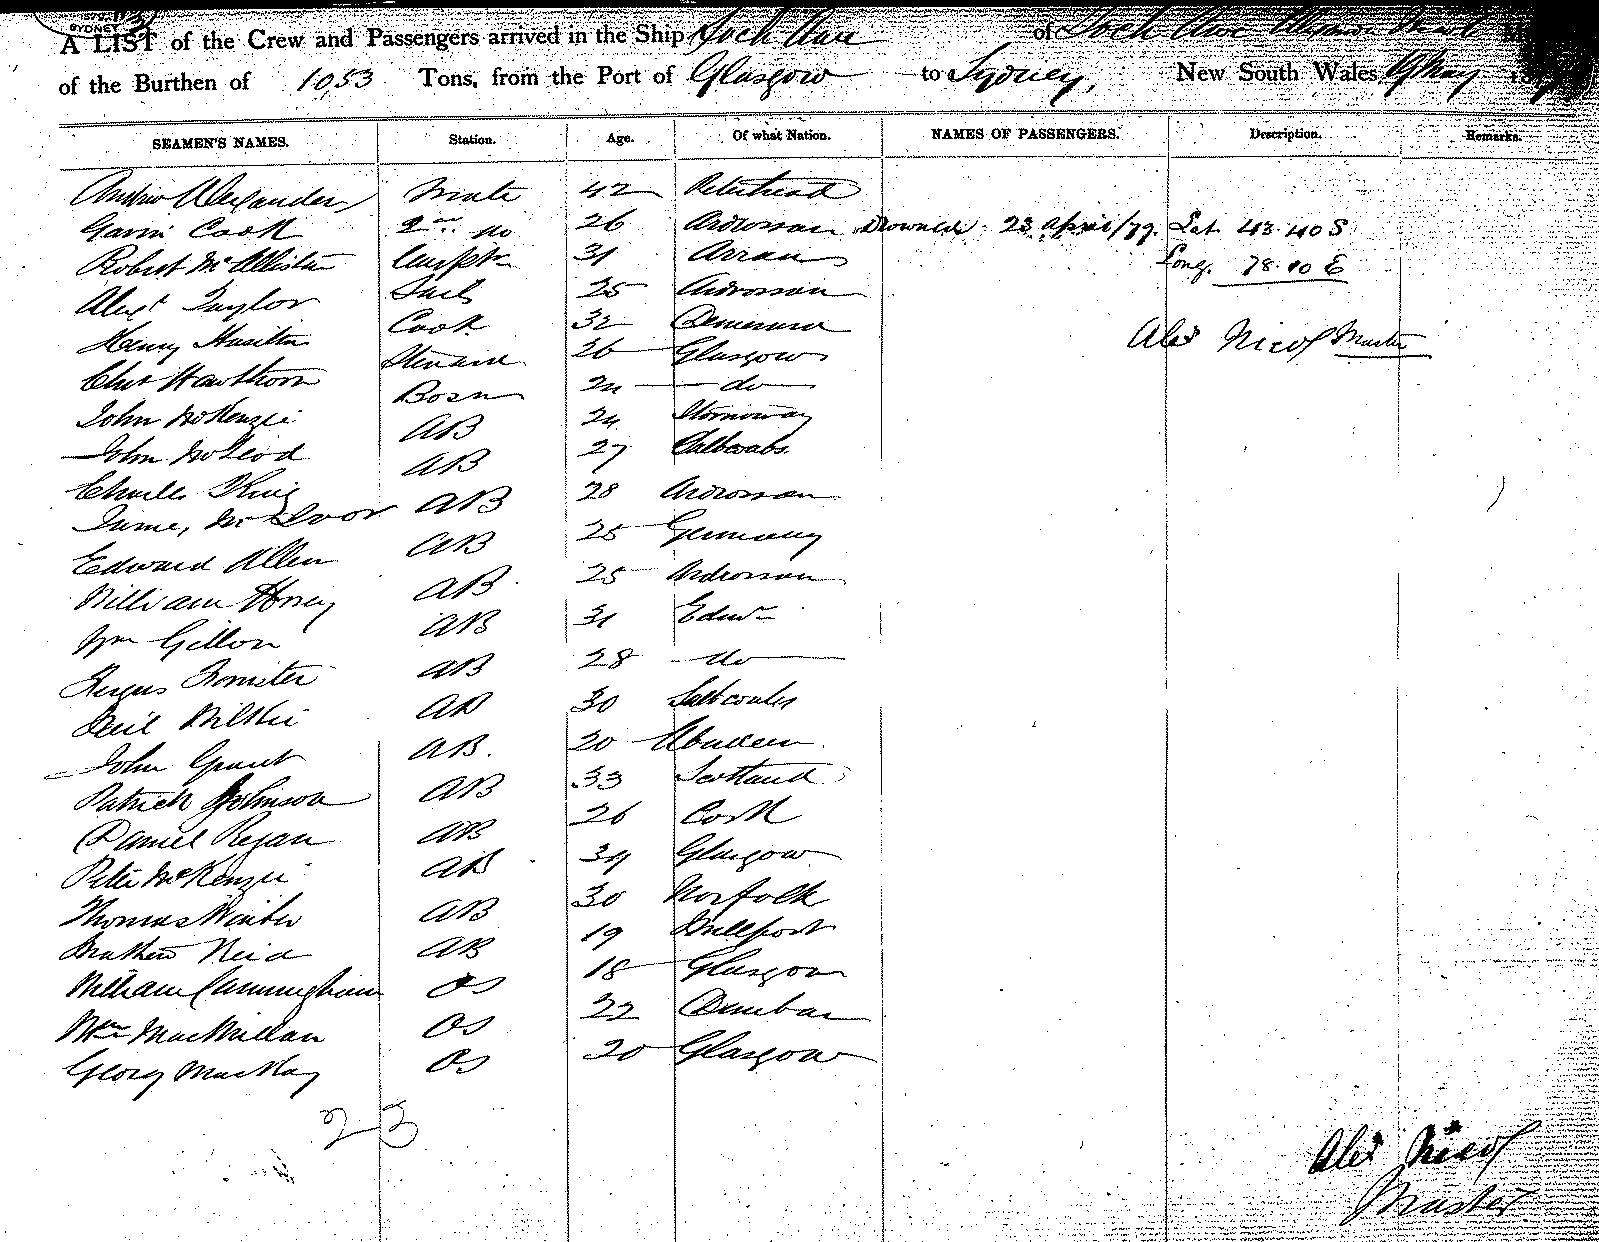 SYDNEY
A LIST of the Crew and Passengers arrived in the Ship Loch Awe of Loch Awe Master
of the Burthen of 1053 Tons, from the Port of Glasgow to Sydney, New South Wales, 19 May
SEAMEN'S NAMES. Station. Age. Of what Nation. NAMES OF PASSENGERS. Description. Remarks.
Andrew Alexander Mate 42 Peterhead
Gavin Cook 2nd do 26 Ardrossan Drowned 23 April/79. Lat 43.40 S
Robert McAllister Carptr 31 Arran Long. 78.10 E
Alext Taylor Sails 25 Ardrossan
Henry Cook 32 Demerara Alex Nicol Master
Chas Hawthorn Steward 26 Glasgow
John McKenzie Bosn 24 do
John McLeod AB 24 Stornoway
Charles King AB 27
James McIvor AB 28 Ardrossan
Edward Allen AB 25 Germany
William AB 25 Ardrossan
Wm Gillon AB 31 Edinr
Angus AB 28 do
Neil Wilkie AB 30 Saltcoates
John Grant AB. 20 Aberdeen
Patrick Johnson AB 33 Scotland
Daniel Regan AB 26 Cork
Peter McKenzie AB 39 Glasgow
Thomas Winter AB 30 Norfolk
Matthew Reid AB 19 Millport
William Cunningham OS 18 Glasgow
Wm MacMillan OS 22 Dunbar
George MacKay OS 20 Glasgow
23
Alex Nicol
Master